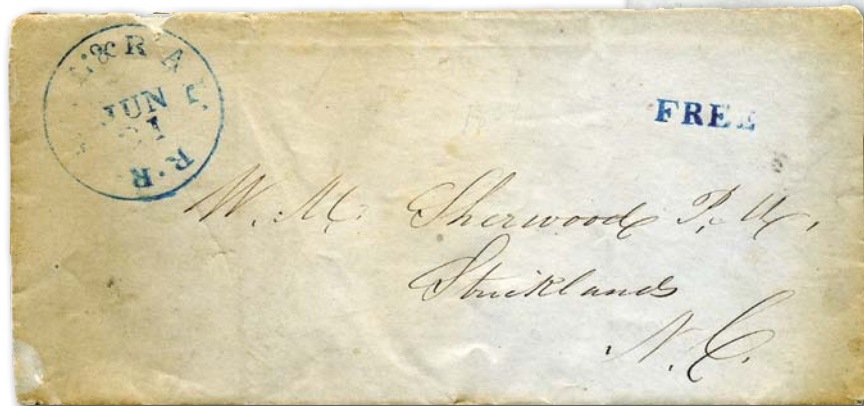 & RAL
JUN
21
R.R.
FREE
W. M. Sherwood P.M.
Stricklands
N.C.